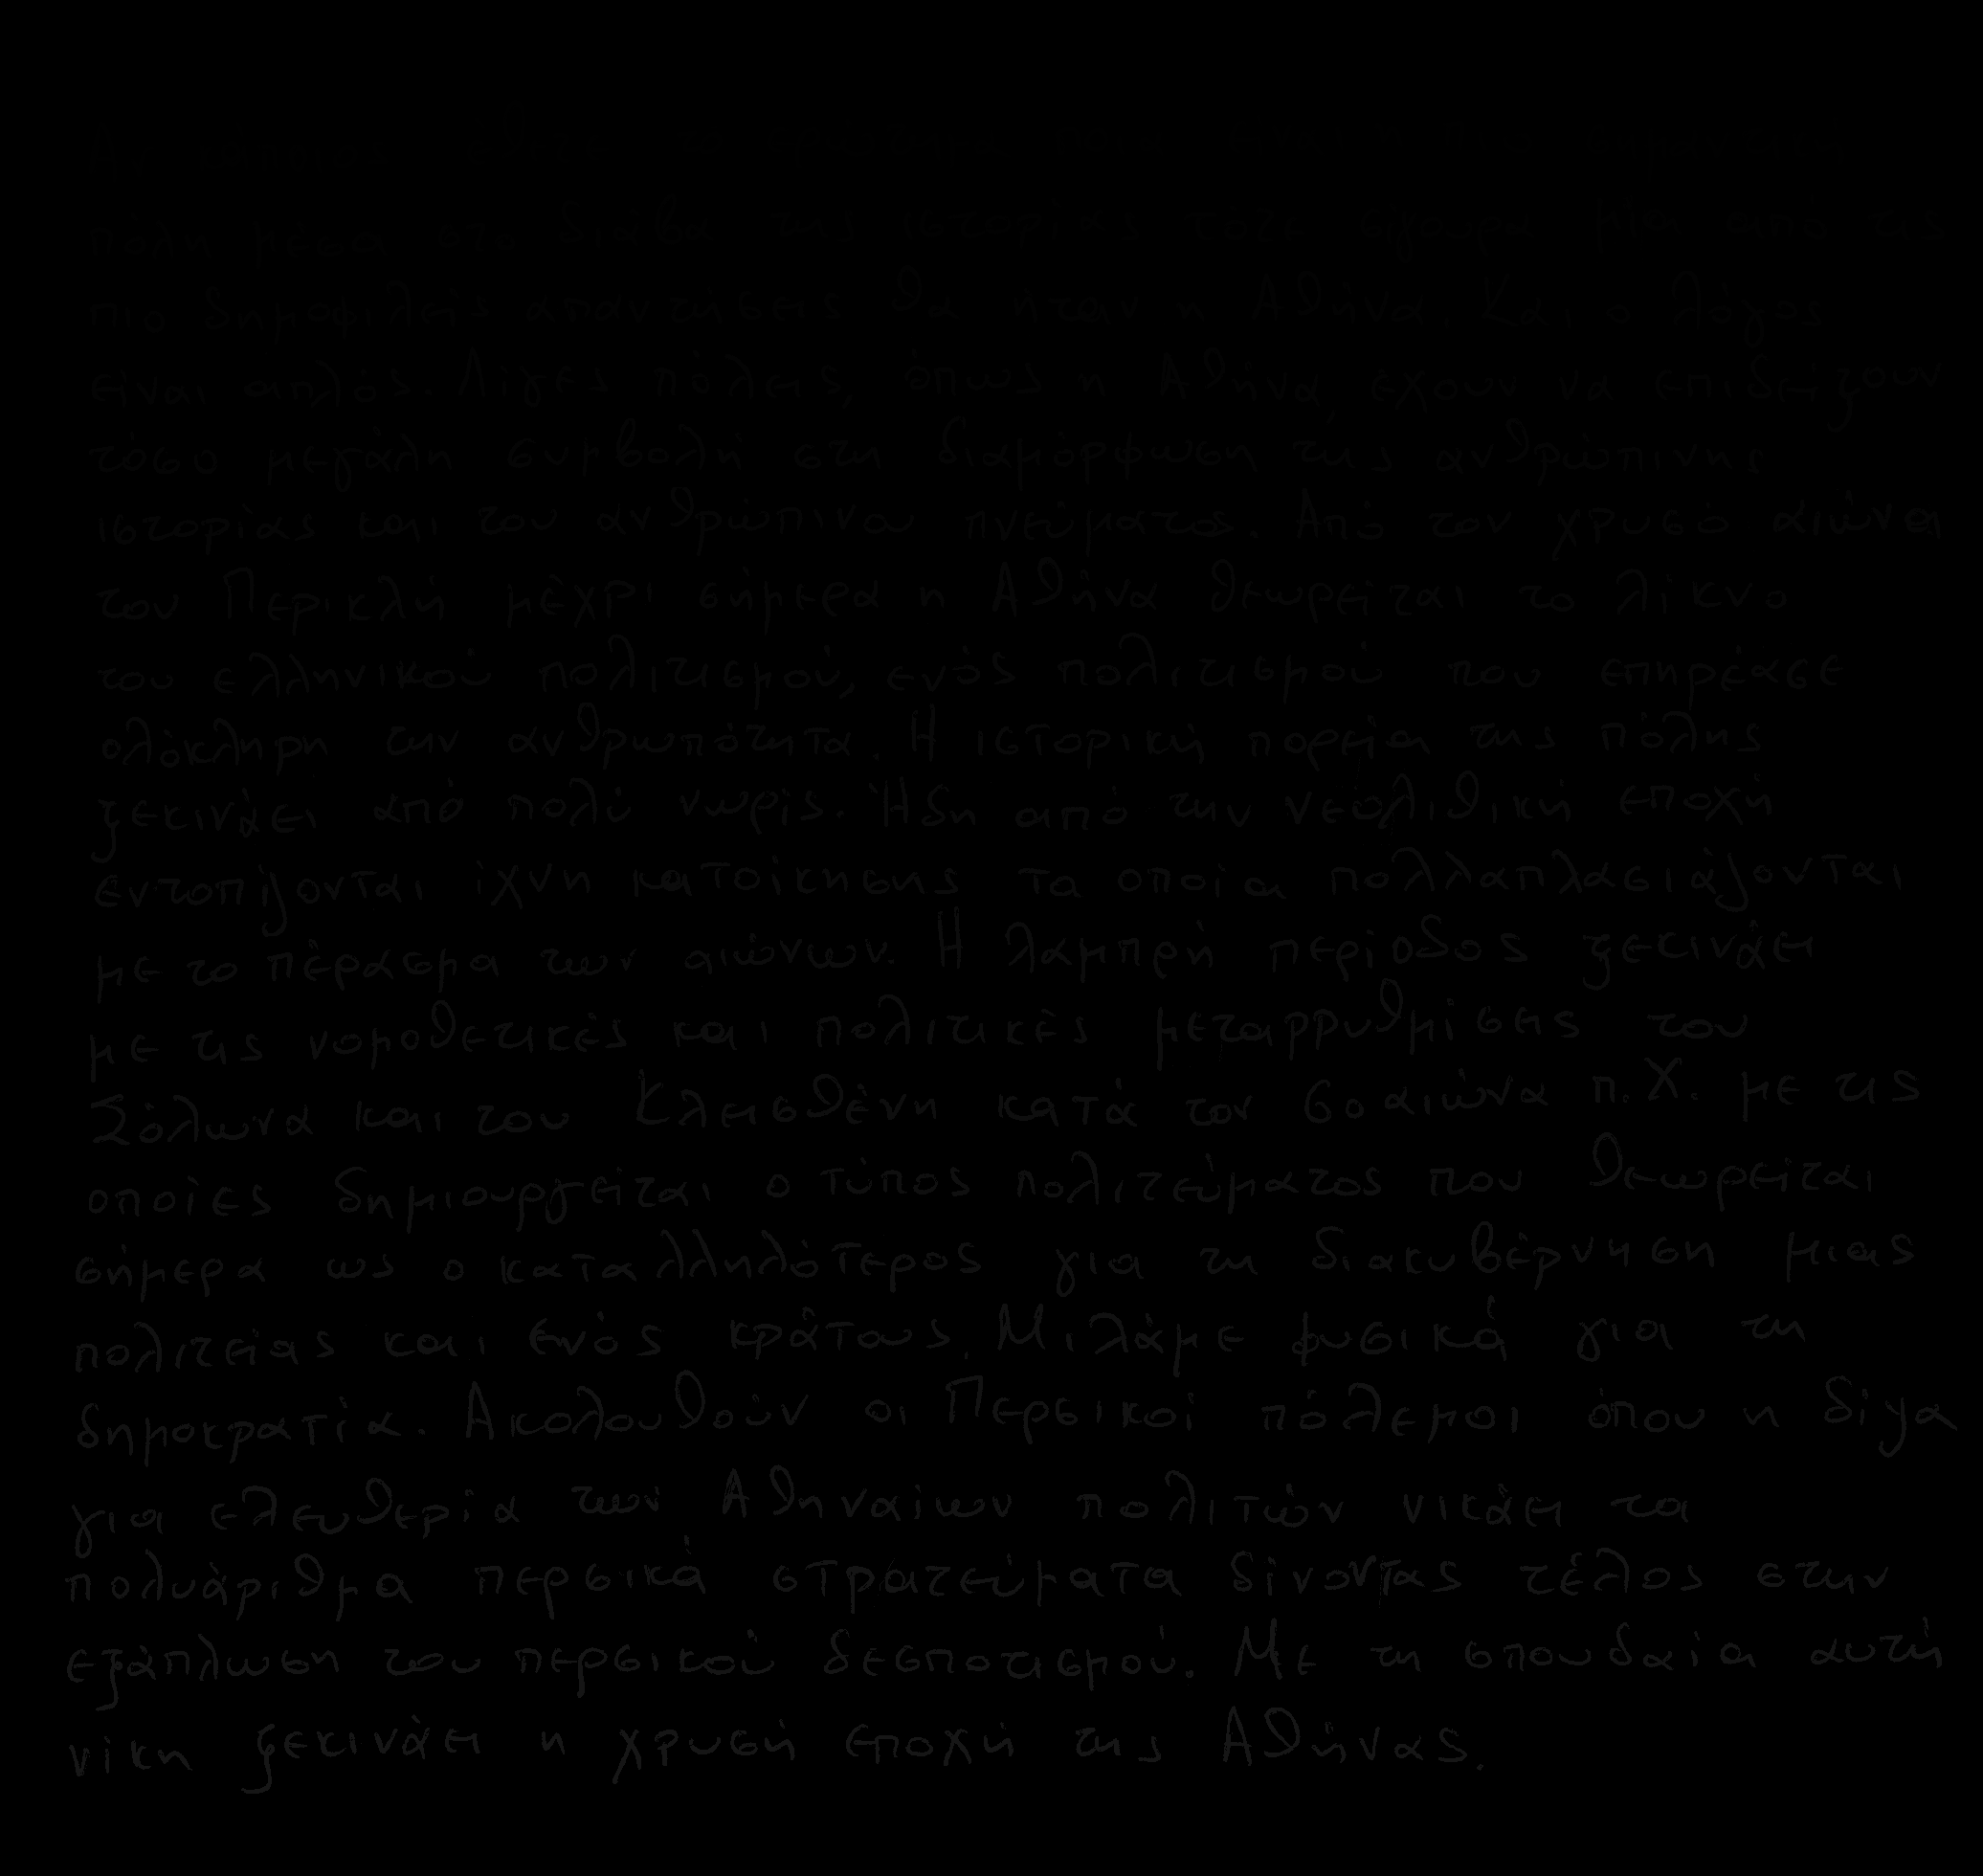 πόλη μέσα στο διάβα της ιστορίας τότε σίγουρα μία από τις
πιο δημοφιλείς απαντήσεις θα ήταν η Αθήνα. Και ο λόγος
είναι απλός. Λίγες πόλεις, όπως η Αθήνα, έχουν να επιδείξουν
τόσο μεγάλη συμβολή στη διαμόρφωση της ανθρώπινης
ιστορίας και του ανθρώπινου πνεύματος. Από τον χρυσό αιώνα
του Περικλή μέχρι σήμερα η Αθήνα θεωρείται το λίκνο
του ελληνικού πολιτισμού, ενός πολιτισμού που επηρέασε
ολόκληρη την ανθρωπότητα. Η ιστορική πορεία της πόλης
ξεκινάει από πολύ νωρίς. Ήδη από την νεολιθική εποχή
εντοπίζονται ίχνη κατοίκησης τα οποία πολλαπλασιάζονται
με το πέρασμα των αιώνων. Η λαμπρή περίοδος ξεκινάει
με τις νομοθετικές και πολιτικές μεταρρυθμίσεις του
Σόλωνα και του Κλεισθένη κατά τον 6ο αιώνα π.Χ. με τις
οποίες δημιουργείται ο τύπος πολιτεύματος που θεωρείται
σήμερα ως ο καταλληλότερος για τη διακυβέρνηση μιας
πολιτείας και ενός κράτους. Μιλάμε φυσικά για τη
δημοκρατία. Ακολουθούν οι Περσικοί πόλεμοι όπου η δίψα
για ελευθερία των Αθηναίων πολιτών νικάει τα
πολυάριθμα περσικά στρατεύματα δίνοντας τέλος στην
εξάπλωση του περσικού δεσποτισμού. Με τη σπουδαία αυτή
νίκη ξεκινάει η χρυσή εποχή της Αθήνας.